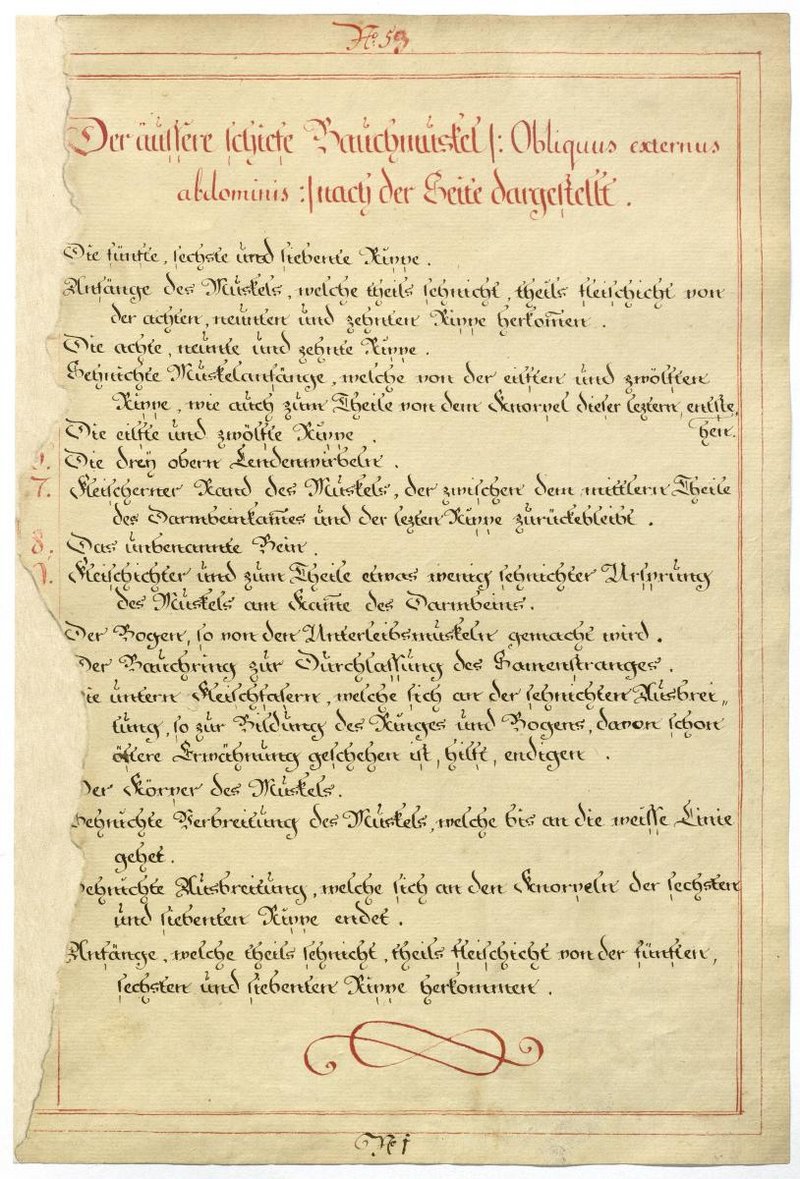 No. 53
Der äussere schiefe Bauchmuskel /: Obliquus externus
abdominis :/ nach der Seite dargestellt.
Die fünfte, sechste und siebente Rippe.
Anfänge des Muskels, welche theils sehnicht, theils fleischicht von
der achten, neunten und zehnten Rippe herkom̅en.
Die achte, neunte und zehnte Rippe.
Sehnichte Muskelanfänge, welche von der eilften und zwölften
Rippe, wie auch zum Theile von dem Knorpel dieser leztern, entste,
hen.
Die eilfte und zwölfte Rippe.
Die drey obern Lendenwirbeln.
7. Fleischerner Rand des Muskels, der zwischen dem mittlern Theile
des Darmbeinkam̅es und der lezten Rippe zurückebleibt.
8. Das unbenannte Bein.
Fleischichter und zum Theile etwas wenig sehnichter Ursprung
des Muskels am Kam̅e des Darmbeins.
Der Bogen, so von den Unterleibsmuskeln gemacht wird.
Der Bauchring zur Durchlassung des Samenstranges.
ie untern Fleischfasern, welche sich an der sehnichten Ausbrei„
tung, so zur Bildung des Ringes und Bogens, davon schon
öftere Erwähnung geschehen ist, hilft, endigen.
Der Körper des Muskels.
Sehnichte Verbreitung des Muskels, welche bis an die weisse Linie
gehet.
Sehnichte Ausbreitung, welche sich an den Knorpeln der sechsten
und siebenten Rippe endet.
Anfänge, welche theils sehnicht, theils fleischicht von der fünften,
sechsten und siebenten Rippe herkommen.
No 1